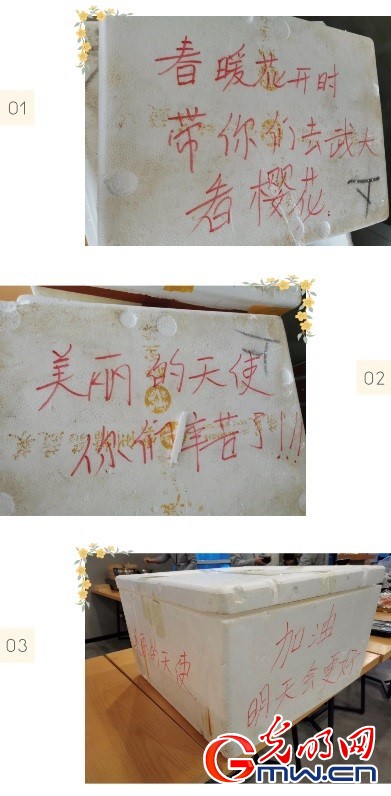 01
春暖花开时
带你们去武大
看樱花
02
美丽的天使
你们辛苦了!!!
03
的天使
加油
明天会更好
光明网
GMW.cn